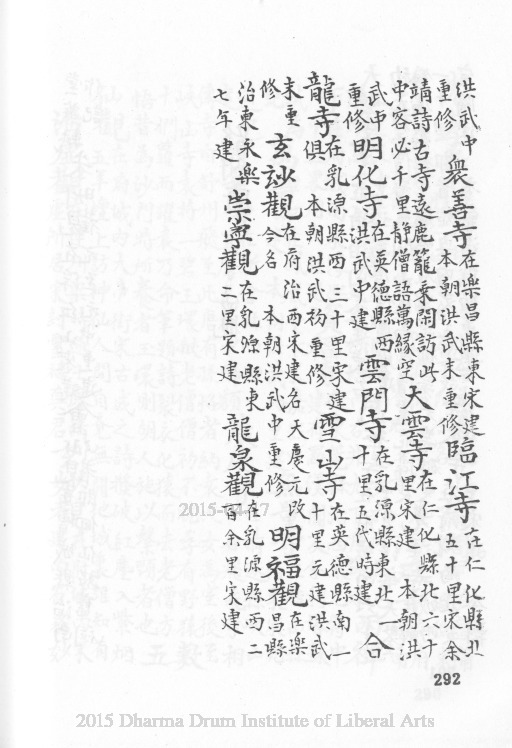 洪武中重修衆善寺在樂昌縣東宋建本朝洪武末重修臨江寺在仁化縣北一五十里宋余
靖詩古寺遠鹿籠乘閑訪此中容必千里静僧語萬緣空天雲寺在仁化縣北六十里宋建 本朝洪
武中重修明化寺在英德縣西洪武中建雲門寺在乳源縣東北一十里五代時建合
龍寺在乳源縣西三十里宋建俱 本朝洪武初重修雪山寺在英德縣南一十里元建洪武
末重修玄妙觀在府治西宋建名天慶元改今名 本朝洪武中重修明福觀在樂昌縣
治東永樂七年建崇寧觀在乳源縣東二里宋建龍泉觀在乳源縣西二百余里宋建
292
2015-04-17
2015 Dharma Drum Institute of Liberal Arts